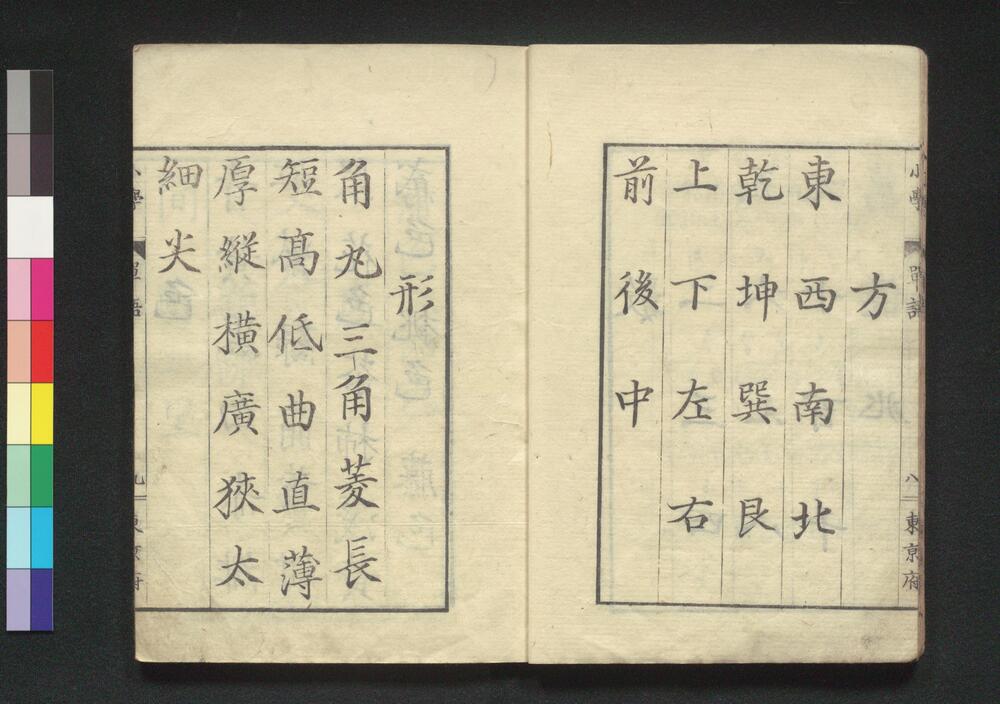 小學
單語
八
東京府
方
東西南北
乾坤巽艮
上下左右
前後中
形
角丸三角菱長
短高低曲直薄
厚縦橫廣狹太
細尖
小學
單語
九
東京府